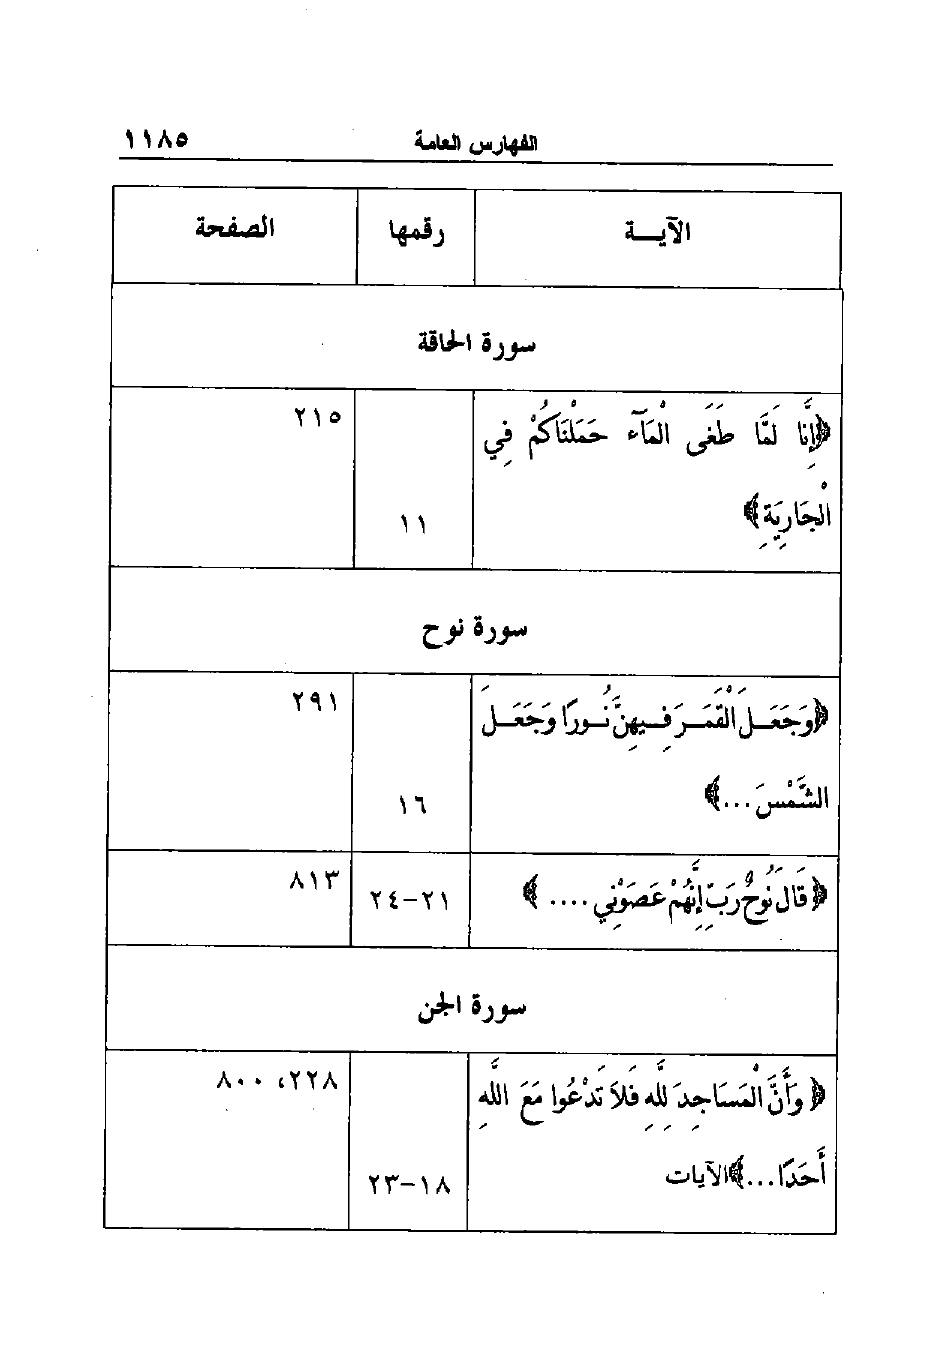 الفهارس العامة ١١٨٥
الآيــة رقمها الصفحة
سورة الحاقة
﴿إِنَّا لَمَّا طَغَى الْمَآءُ حَمَلْنَاكُمْ فِي ٢١٥
الْجَارِيَةِ﴾ ١١
سورة نوح
﴿وَجَعَلَ الْقَمَرَ فِيهِنَّ نُورًا وَجَعَلَ ٢٩١
الشَّمْسَ...﴾ ١٦
﴿قَالَ نُوحٌ رَبِّ إِنَّهُمْ عَصَوْنِي ....﴾ ٢١-٢٤ ٨١٣
سورة الجن
﴿وَأَنَّ الْمَسَاجِدَ لِلَّهِ فَلَا تَدْعُوا مَعَ اللَّهِ ٢٢٨، ٨٠٠
أَحَدًا...﴾الآيات ١٨-٢٣